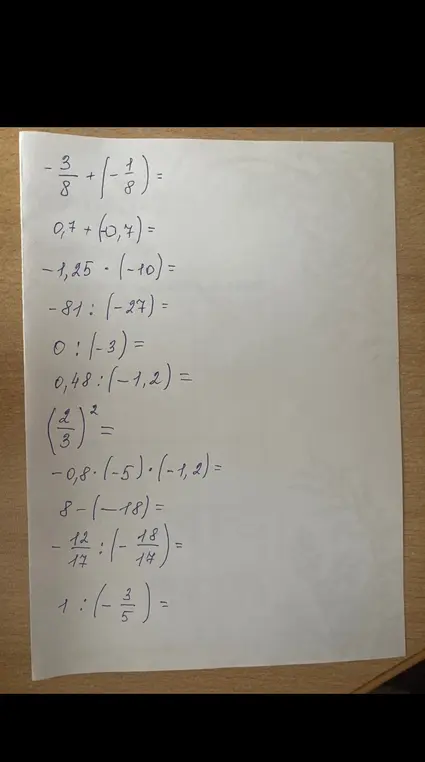 -3/8 + (-1/8) =
0,7 + (-0,7) =
-1,25 · (-10) =
-81 : (-27) =
0 : (-3) =
0,48 : (-1,2) =
(2/3)² =
-0,8 · (-5) · (-1,2) =
8 - (-18) =
-12/17 : (-18/17) =
1 : (-3/5) =